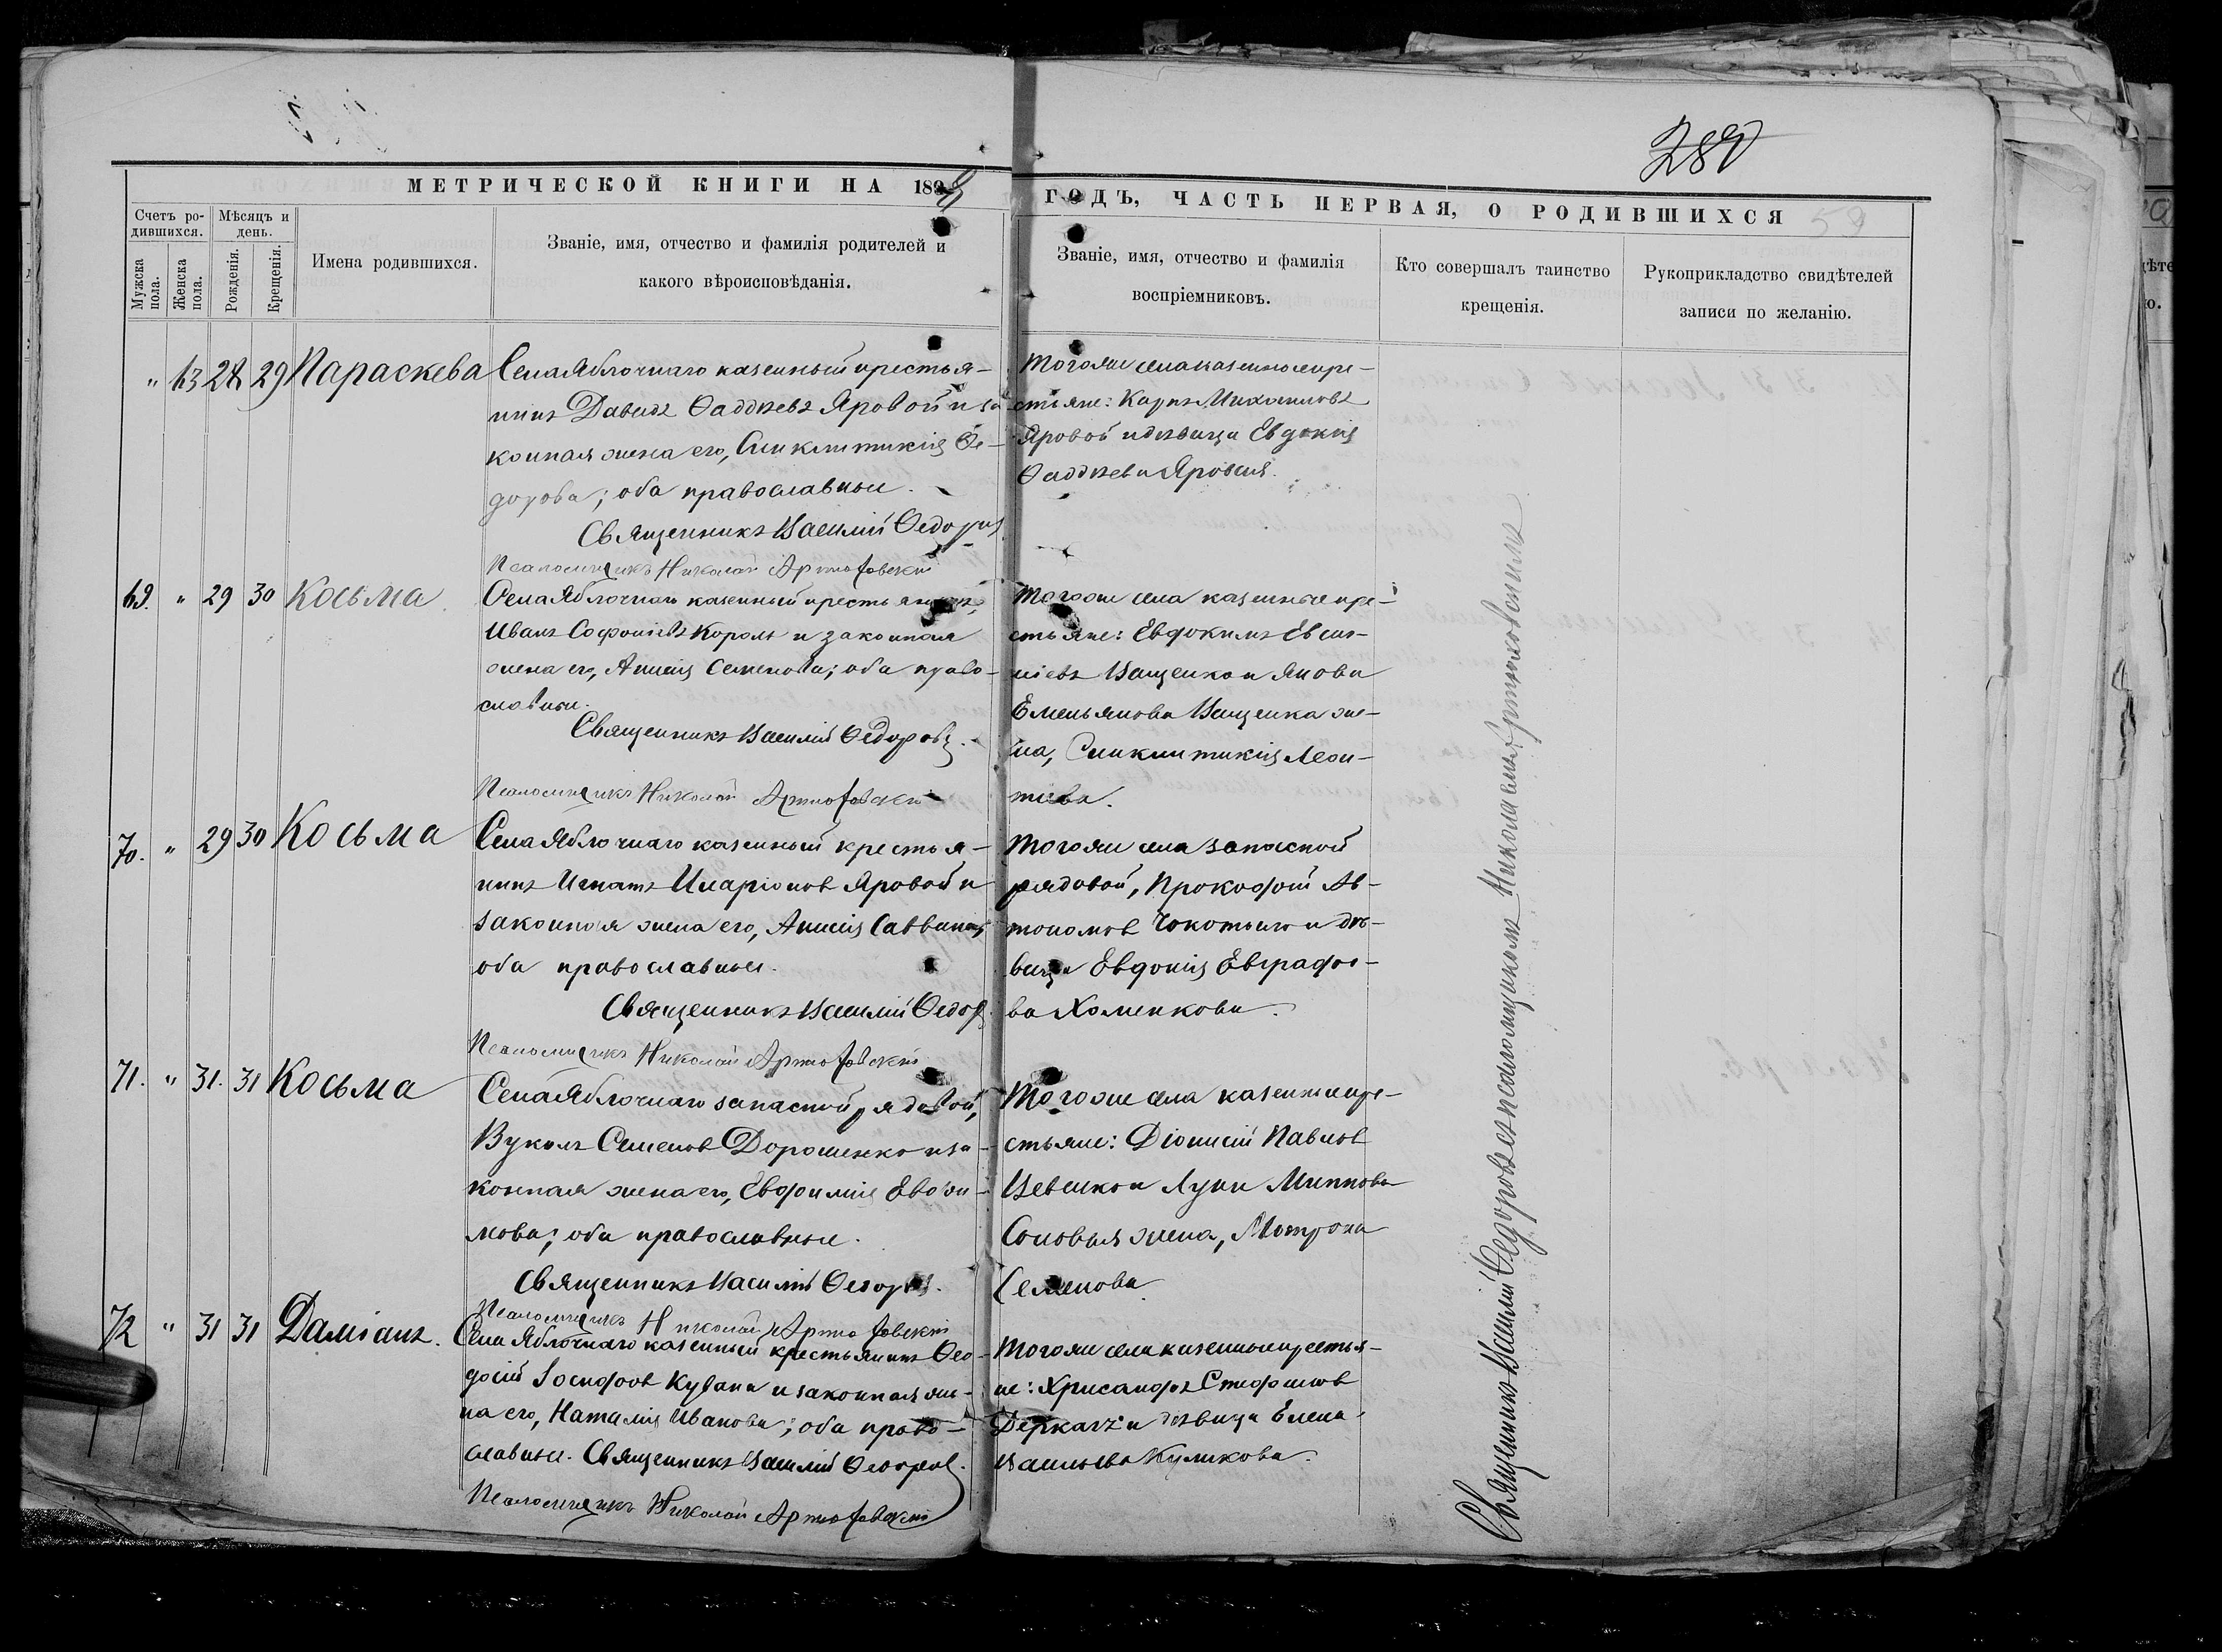 289
МЕТРИЧЕСКОЙ КНИГИ НА 189
ГОДЪ, ЧАСТЬ ПЕРВАЯ, О РОДИВШИХСЯ
Счетъ ро-
дившихся.
Мужска
пола.
Женска
пола.
Мѣсяцъ и
день.
Рожденія.
Крещенія.
Имена родившихся.
Званіе, имя, отчество и фамилія родителей и
какого вѣроисповѣданія.
Званіе, имя, отчество и фамилія
воспріемниковъ.
Кто совершалъ таинство
крещенія.
Рукоприкладство свидѣтелей
записи по желанію.
" 63 28 29 Параскева
Села Яблочнаго казенный крестья-
нинъ Давидъ Ѳаддѣевъ Яровой и за-
конная жена его, Синклитикія Ѳе-
дорова; оба православные.
Священникъ Василій Ѳедоровъ
Псаломщикъ Николай Артюховскій
Тогоже села казенные кре-
стьяне: Карпъ Михаиловъ
Яровой и дѣвица Евдокія
Ѳаддѣева Яровая.
69. " 29 30 Косьма
Села Яблочнаго казенный крестьянинъ,
Иванъ Софоніевъ Король и законная
жена его, Анисія Семенова; оба право-
славные.
Священникъ Василій Ѳедоровъ.
Псаломщикъ Николай Артюховскій
Тогоже села казенные кре-
стьяне: Евдокимъ Евси-
міевъ Ващенко и Якова
Емельянова Ващенка же-
на, Синклитикія Леон-
тьева.
70. " 29 30 Косьма
Села Яблочнаго казенный крестья-
нинъ Игнатъ Иларіоновъ Яровой и
законная жена его, Анисія Саввина;
оба православные.
Священникъ Василій Ѳедор
Псаломщикъ Николай Артюховскій
Тогоже села запасной
рядовой, Прокофій Ав-
тономовъ и дѣ-
вица Евдокія Евграфо-
ва Хоменкова.
71. " 31. 31 Косьма
Села Яблочнаго запасной рядовой,
Вуколъ Семеновъ Дорошенко и за-
конная жена его, Евфимія Евфи-
мова; оба православные.
Священникъ Василій Ѳедоровъ.
Псаломщикъ Николай Артюховскій
Тогоже села казенные кре-
стьяне: Діонисій Павловъ
Шевченко и Луки
жена, Матрона
Семенова
72 " 31 31 Даміанъ.
Села Яблочнаго казенный крестьянинъ Ѳео-
досій Іосифовъ и законная же-
на его, Наталія Иванова; оба право-
славные. Священникъ Василій Ѳедоровъ.
Псаломщикъ Николай Артюховскій
Тогоже села казенные крестья-
не: Хрисанфъ Стефановъ
Деркачъ и дѣвица Елена
Васильева Куликова.
Священникъ Василій Ѳедоровъ съ псаломщикомъ Николаемъ Артюховскимъ